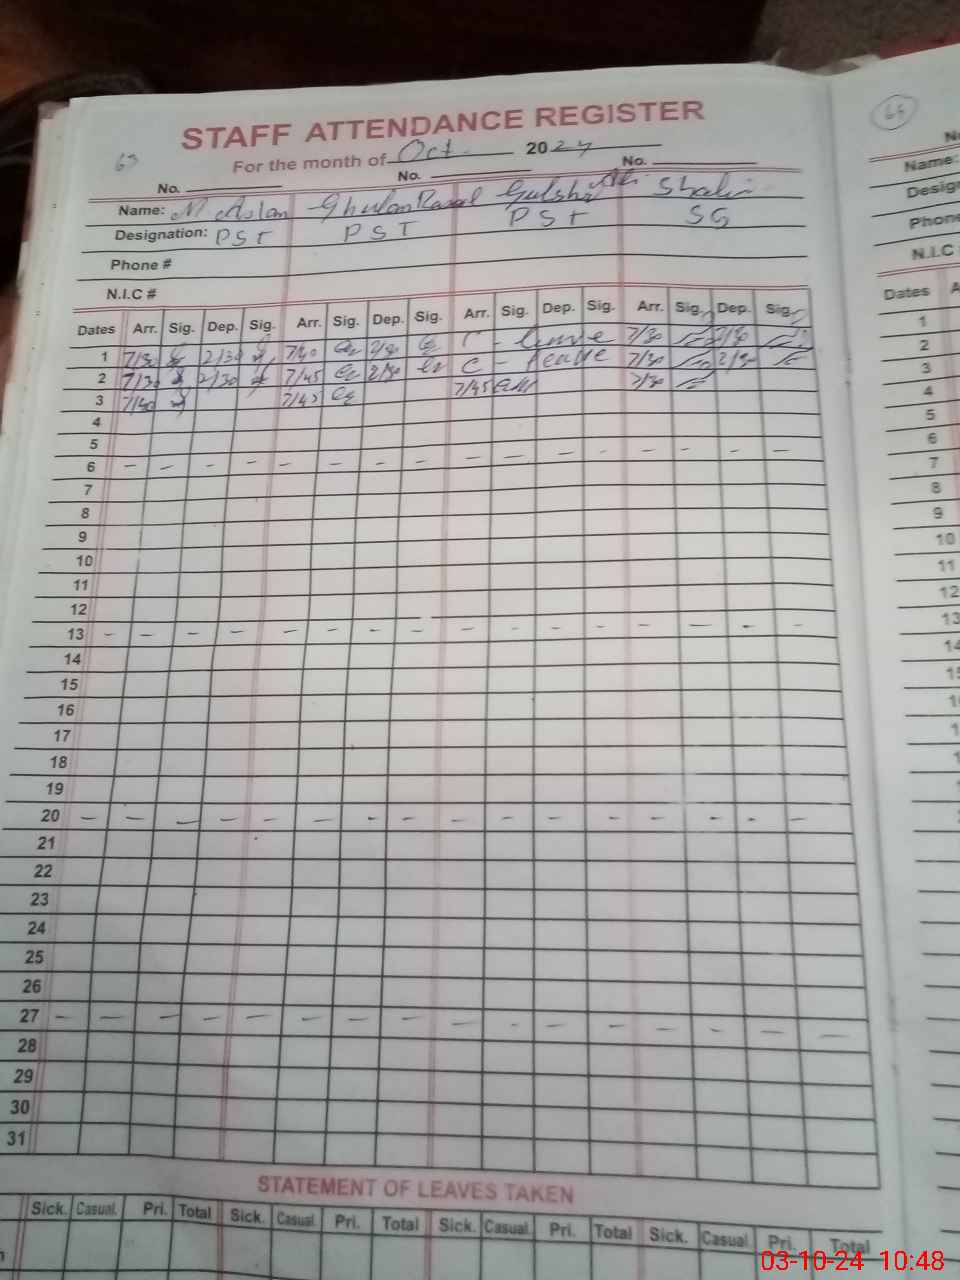 STAFF ATTENDANCE REGISTER
63
For the month of Oct. 2024
No. No. No.
Name: M Aslan Ghulam Rasol Gulsher Ali Shakir
Designation: PST PST PST SG
Phone #
N.I.C #
Dates Arr. Sig. Dep. Sig. Arr. Sig. Dep. Sig. Arr. Sig. Dep. Sig. Arr. Sig. Dep. Sig.
1 7/30 2/30 7/40 2/30 C - leave 7/30 2/30
2 7/30 2/30 7/45 2/30 C - leave 7/30 2/30
3 7/40 7/45 7/45 7/30
4
5
6 - - - - - - - - - - - - - - - -
7
8
9
10
11
12
13 - - - - - - - - - - - - - - - -
14
15
16
17
18
19
20 - - - - - - - - - - - - - - - -
21
22
23
24
25
26
27 - - - - - - - - - - - - - - - -
28
29
30
31
STATEMENT OF LEAVES TAKEN
Sick. Casual. Pri. Total Sick. Casual. Pri. Total Sick. Casual. Pri. Total Sick. Casual. Pri. Total
64
Name:
Phone
N.I.C
Dates
1
2
3
4
5
6
7
8
9
10
11
12
13
14
03-10-24 10:48